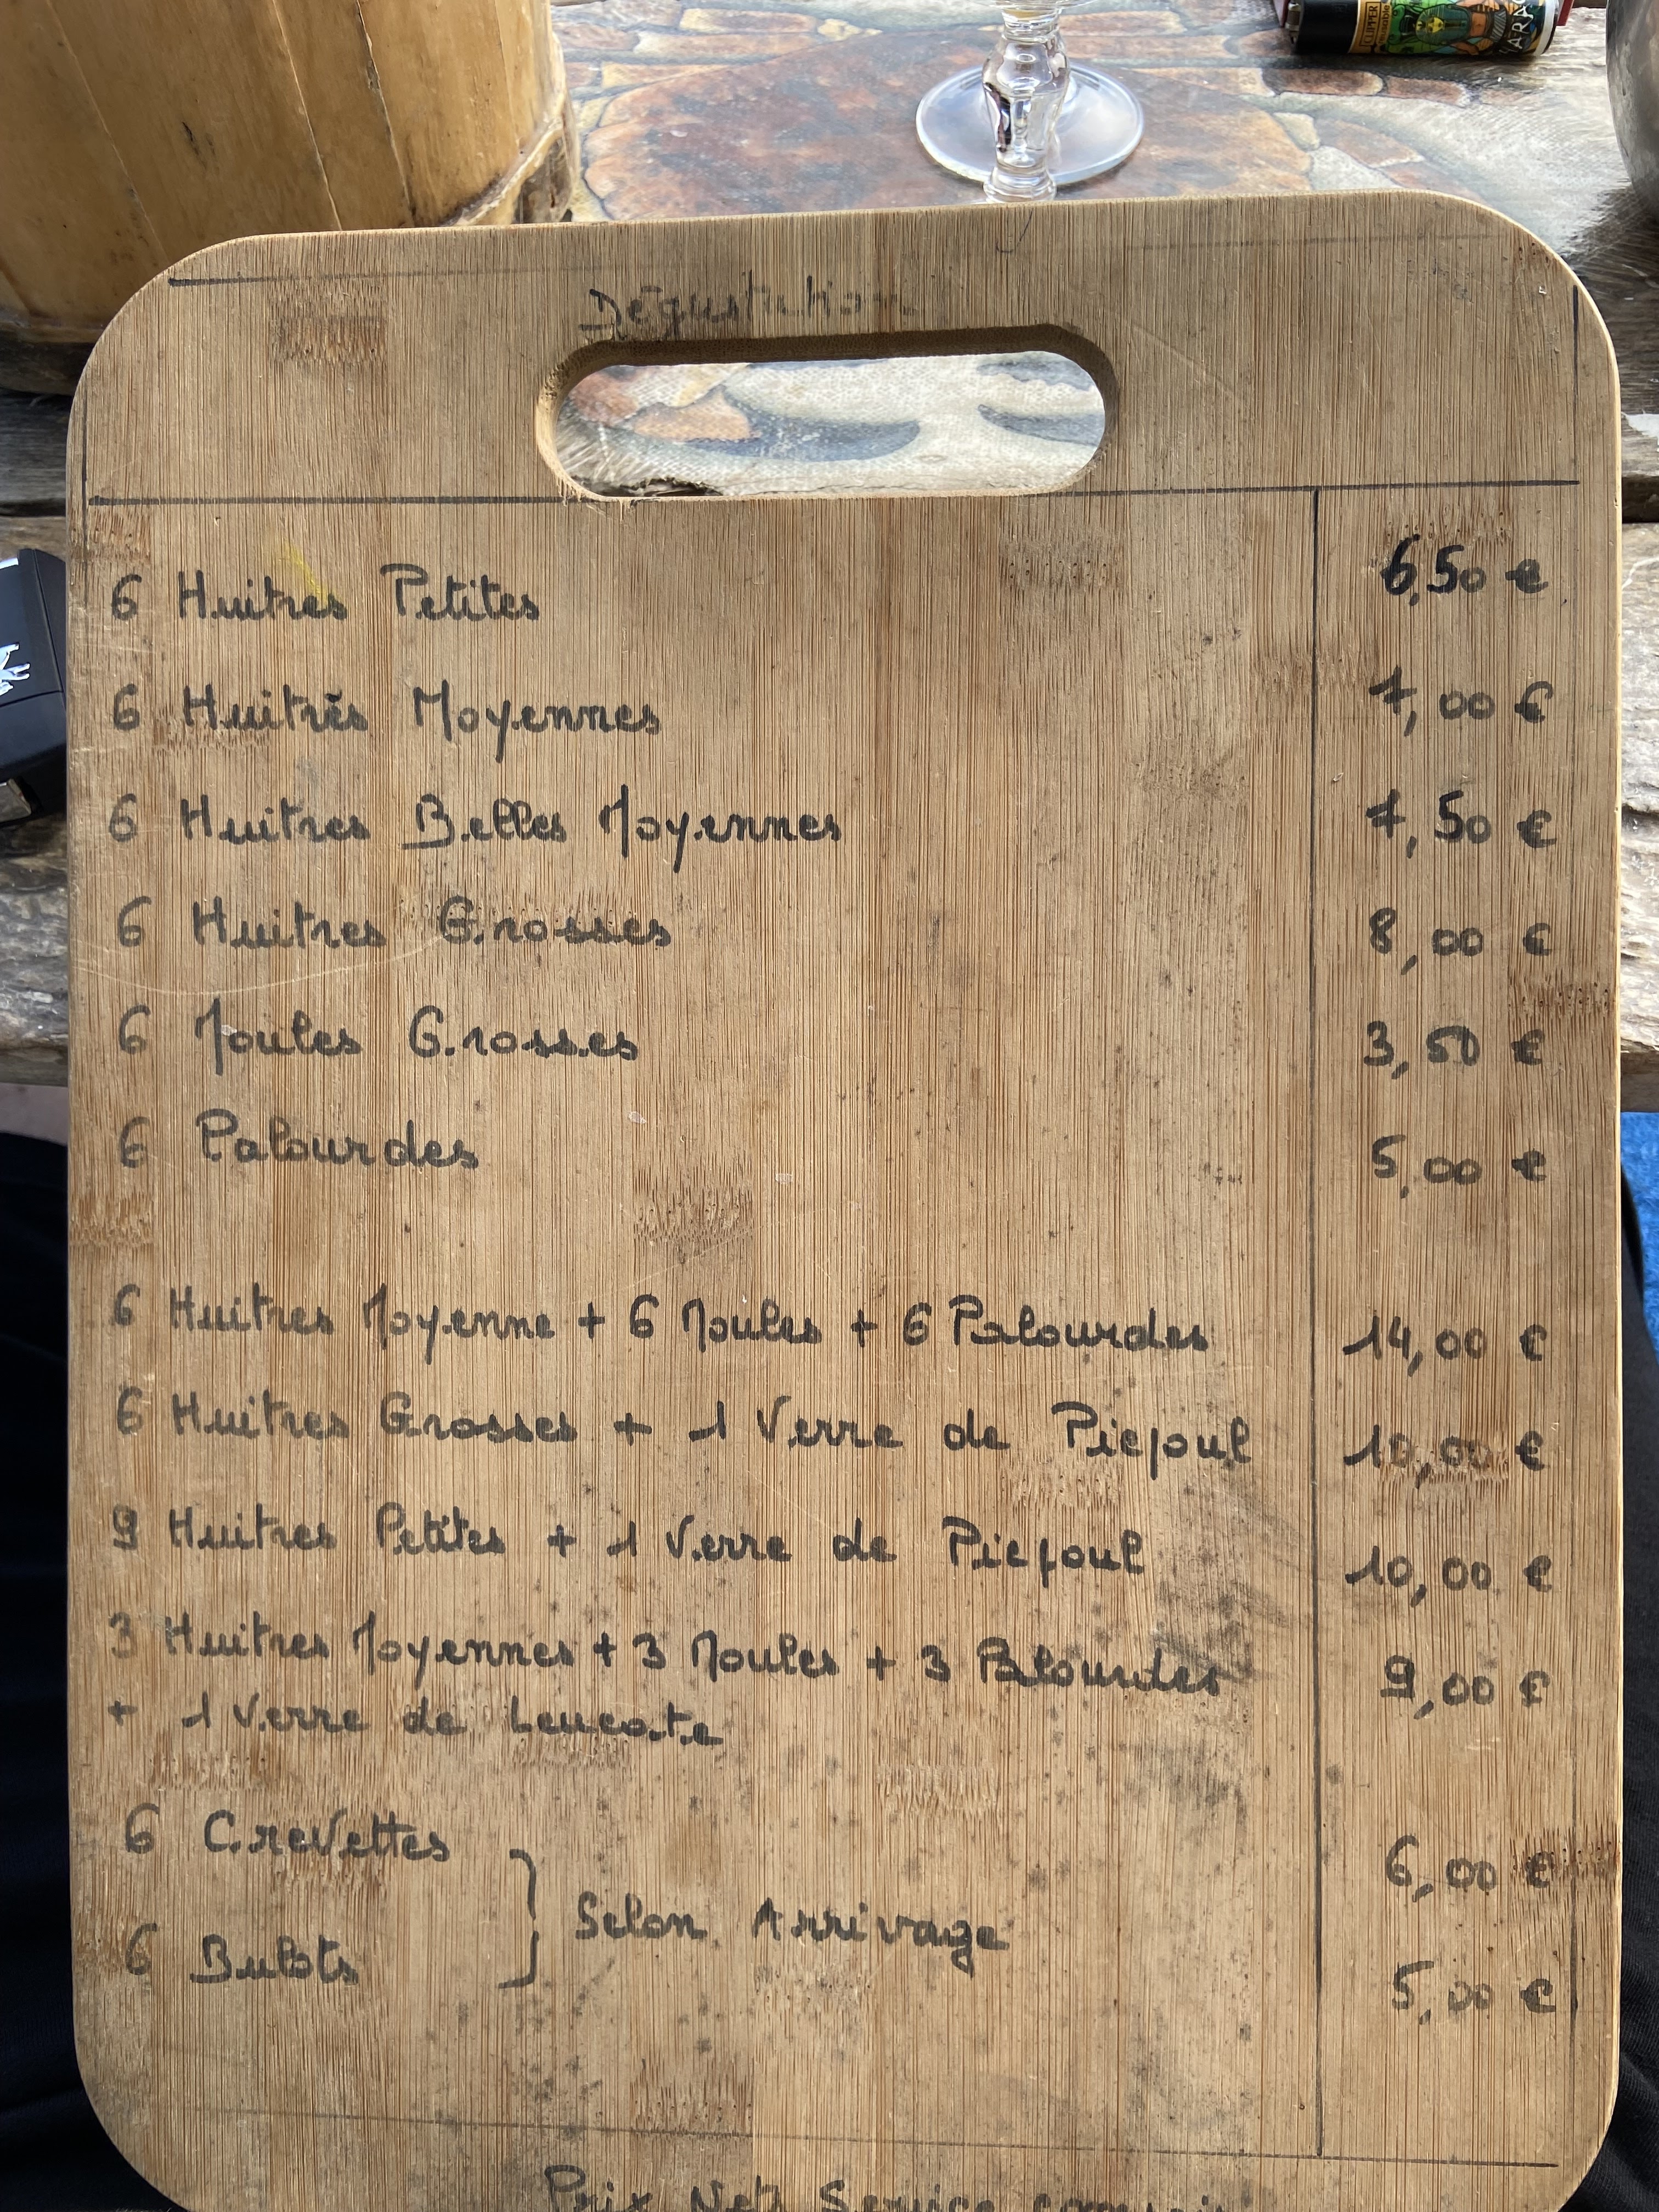 CLIPPER
Dégustation
6 Huitres Petites 6,50 €
6 Huitres Moyennes 7,00 €
6 Huitres Belles Moyennes 7,50 €
6 Huitres Grosses 8,00 €
6 Moules Grosses 3,50 €
6 Palourdes 5,00 €
6 Huitres Moyenne + 6 Moules + 6 Palourdes 14,00 €
6 Huitres Grosses + 1 Verre de Picpoul 10,00 €
9 Huitres Petites + 1 Verre de Picpoul 10,00 €
3 Huitres Moyennes + 3 Moules + 3 Palourdes 9,00 €
+ 1 Verre de Leucate
6 Crevettes 6,00 €
Selon Arrivage
6 Bulots 5,00 €
Prix Nets Service compris